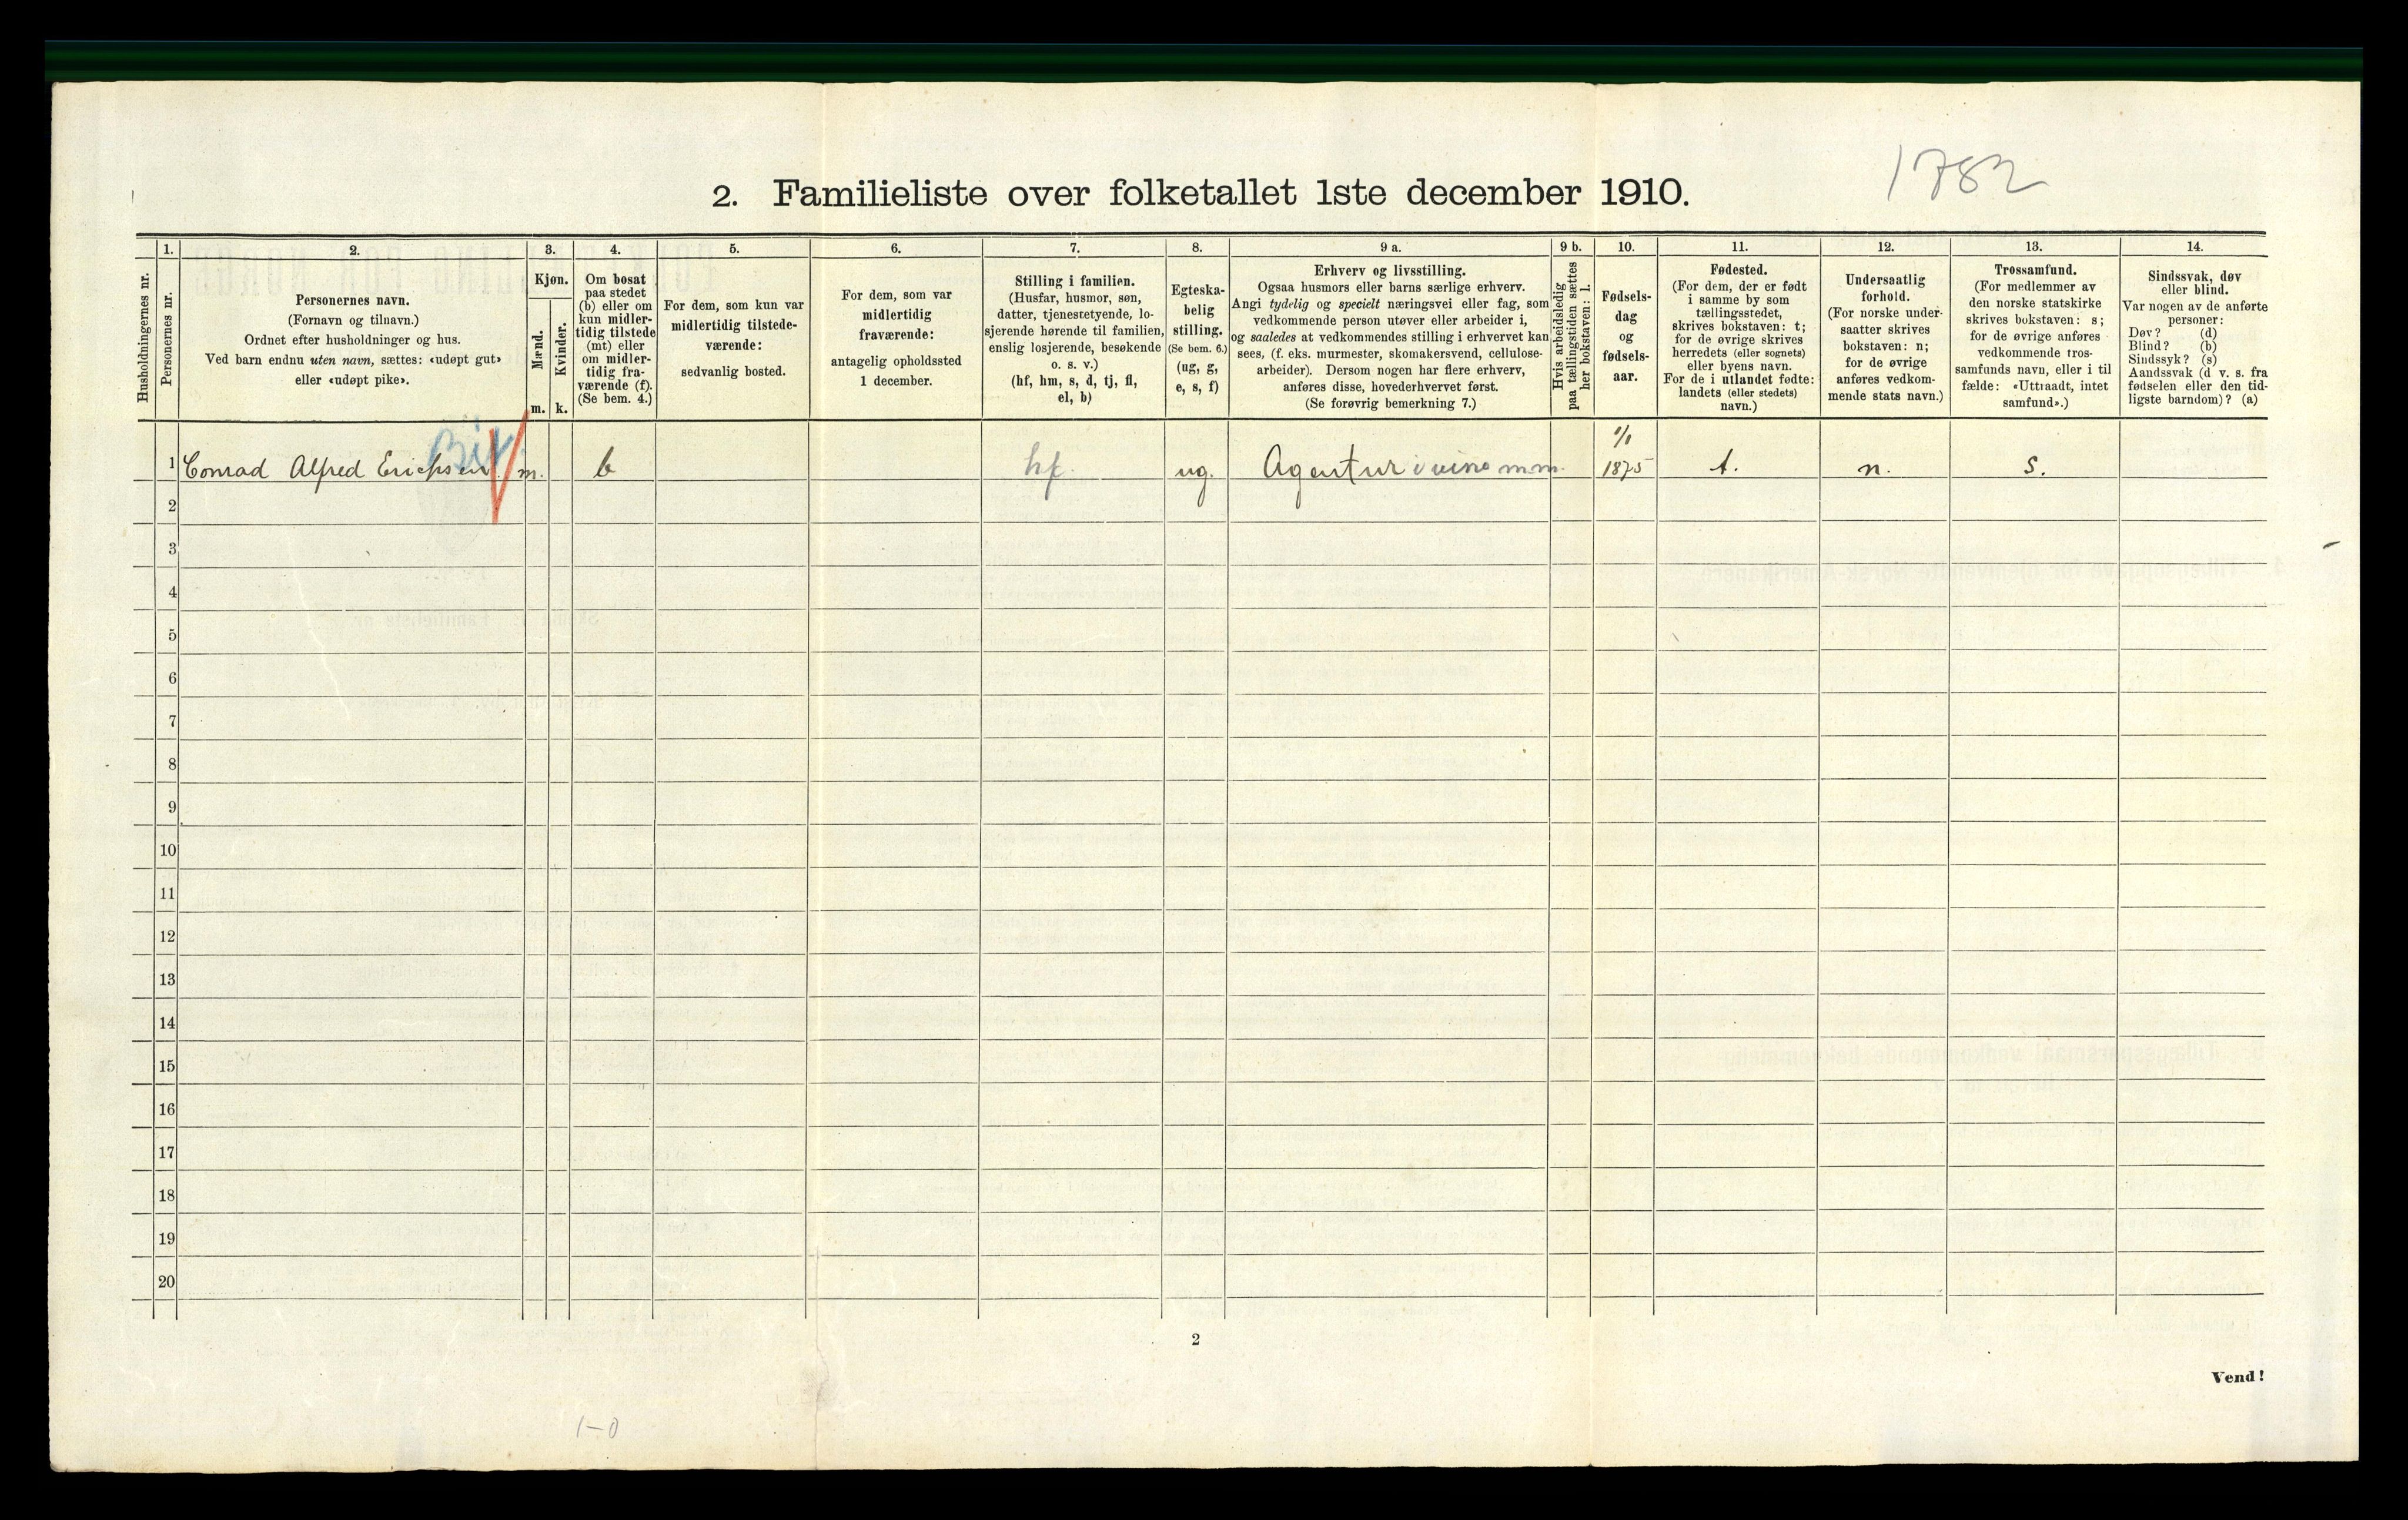 1782
2. Familieliste over folketallet 1ste december 1910.
Husholdningernes nr.
1.
Personernes nr.
2.
Personernes navn.
(Fornavn og tilnavn.)
Ordnet efter husholdninger og hus.
Ved barn endnu uten navn, sættes: «udøpt gut»
eller «udøpt pike».
3.
Kjøn.
Mænd.
m.
Kvinder.
k.
4.
Om bosat
paa stedet
(b) eller om
kun midler-
tidig tilstede
(mt) eller
om midler-
tidig fra-
værende (f).
(Se bem. 4.)
5.
For dem, som kun var
midlertidig tilstede-
værende:
sedvanlig bosted.
6.
For dem, som var
midlertidig
fraværende:
antagelig opholdssted
1 december.
7.
Stilling i familien.
(Husfar, husmor, søn,
datter, tjenestetyende, lo-
sjerende hørende til familien,
enslig losjerende, besøkende
o. s. v.)
(hf, hm, s, d, tj, fl,
el, b)
8.
Egteska-
belig
stilling.
(Se bem. 6.)
(ug, g,
e, s, f)
9 a.
Erhverv og livsstilling.
Ogsaa husmors eller barns særlige erhverv.
Angi tydelig og specielt næringsvei eller fag, som
vedkommende person utøver eller arbeider i,
og saaledes at vedkommendes stilling i erhvervet kan
sees, (f. eks. murmester, skomakersvend, cellulose-
arbeider). Dersom nogen har flere erhverv,
anføres disse, hovederhvervet først.
(Se forøvrig bemerkning 7.)
9 b.
Hvis arbeidsledig
paa tællingstiden sættes
her bokstaven: l.
10.
Fødsels-
dag
og
fødsels-
aar.
11.
Fødested.
(For dem, der er født
i samme by som
tællingsstedet,
skrives bokstaven: t;
for de øvrige skrives
herredets (eller sognets)
eller byens navn.
For de i utlandet fødte:
landets (eller stedets)
navn.)
12.
Undersaatlig
forhold.
(For norske under-
saatter skrives
bokstaven: n;
for de øvrige
anføres vedkom-
mende stats navn.)
13.
Trossamfund.
(For medlemmer av
den norske statskirke
skrives bokstaven: s;
for de øvrige anføres
vedkommende tros-
samfunds navn, eller i til
fælde: «Uttraadt, intet
samfund».)
14.
Sindssvak, døv
eller blind.
Var nogen av de anførte
personer:
Døv? (d)
Blind? (b)
Sindssyk? (s)
Aandssvak (d v. s. fra
fødselen eller den tid-
ligste barndom)? (a)
1 Conrad Alfred Erichsen m. b hf. ug. Agentur i vine m.m. 1875 t. n. s.
2
3
4
5
6
7
8
9
10
11
12
13
14
15
16
17
18
19
20
2
Vend!
1-0